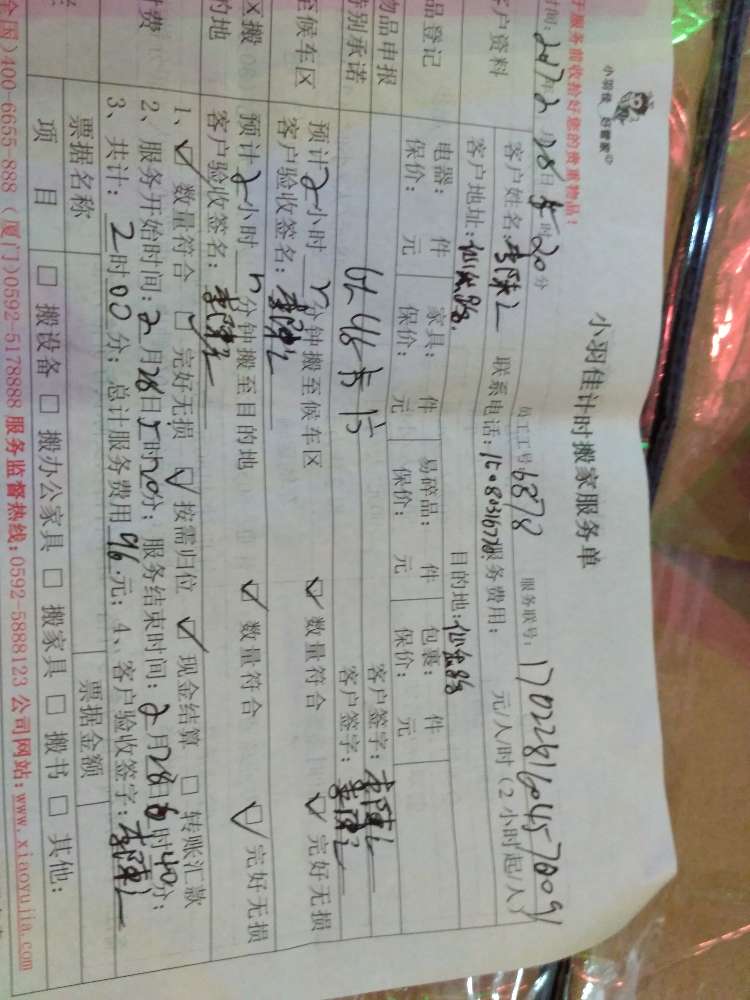 小羽佳 好管家
于服务前收拾好您的贵重物品!
小羽佳计时搬家服务单
时间: 2017年2月28日 时20分
员工工号: 6878
服务联号: 170228160457009
客户资料
客户姓名:
联系电话:
服务费用: 元/人/时(2小时起/人)
客户地址:
目的地:
品登记
电器: 件 家具: 件 易碎品: 件 包裹: 件
保价: 元 保价: 元 保价: 元 保价: 元
物品申报
特别承诺
客户签字:
客户签字:
至候车区
预计2小时 分钟搬至候车区
☑ 数量符合 ☑ 完好无损
客户验收签名:
区搬
的地
预计2小时 分钟搬至目的地
☑ 数量符合 ☑ 完好无损
客户验收签名:
付费
1、☑ 数量符合 □ 完好无损 ☑ 按需归位 ☑ 现金结算 □ 转账汇款
2、服务开始时间: 2月28日5时20分; 服务结束时间: 2月28日6时40分;
3、共计: 2时00分; 总计服务费用96.元; 4、客户验收签字:
票据名称
票据金额
项 目
□ 搬设备 □ 搬办公家具 □ 搬家具 □ 搬书 □ 其他:
全国)400-6655-888 (厦门)0592-5178888 服务监督热线:0592-5888123 公司网站:www.xiaoyujia.com